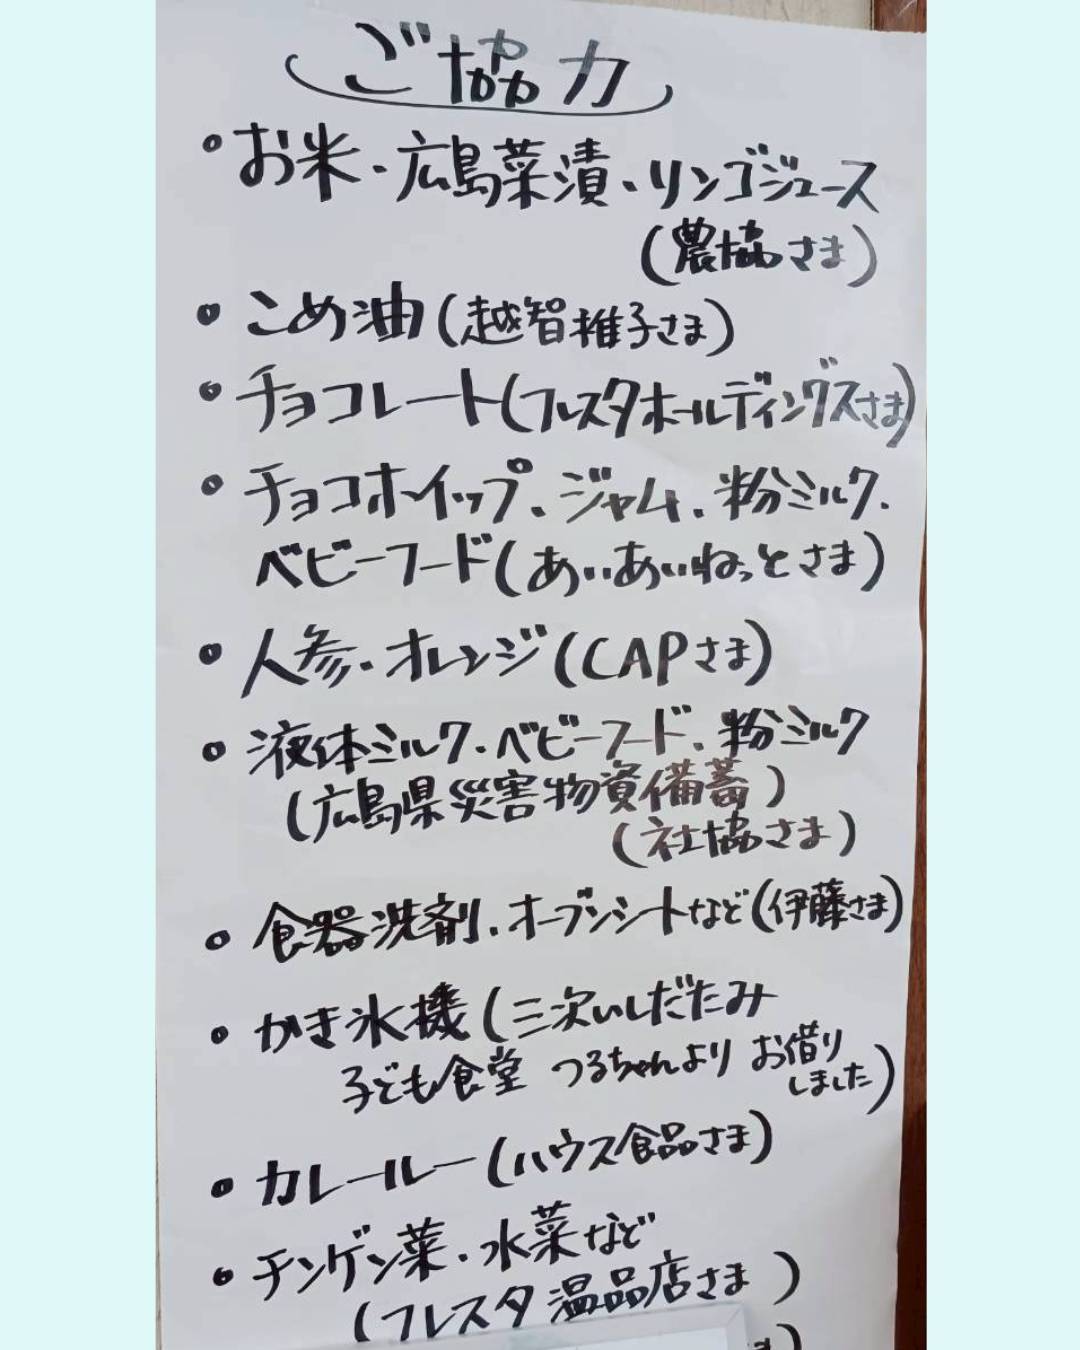 ご協力
・お米・広島菜漬・リンゴジュース
(農協さま)
・こめ油(越智推子さま)
・チョコレート(フレスタホールディングスさま)
・チョコホイップ、ジャム、粉ミルク、
ベビーフード(あいあいねっとさま)
・人参・オレンジ(CAPさま)
・液体ミルク・ベビーフード、粉ミルク
(広島県災害物資備蓄)
(社協さま)
・食器洗剤、オーブンシートなど(伊藤さま)
・かき氷機(三次いしだたみ
子ども食堂 つるちゃんより お借り
しました)
・カレールー(ハウス食品さま)
・チンゲン菜・水菜など
(フレスタ温品店さま)